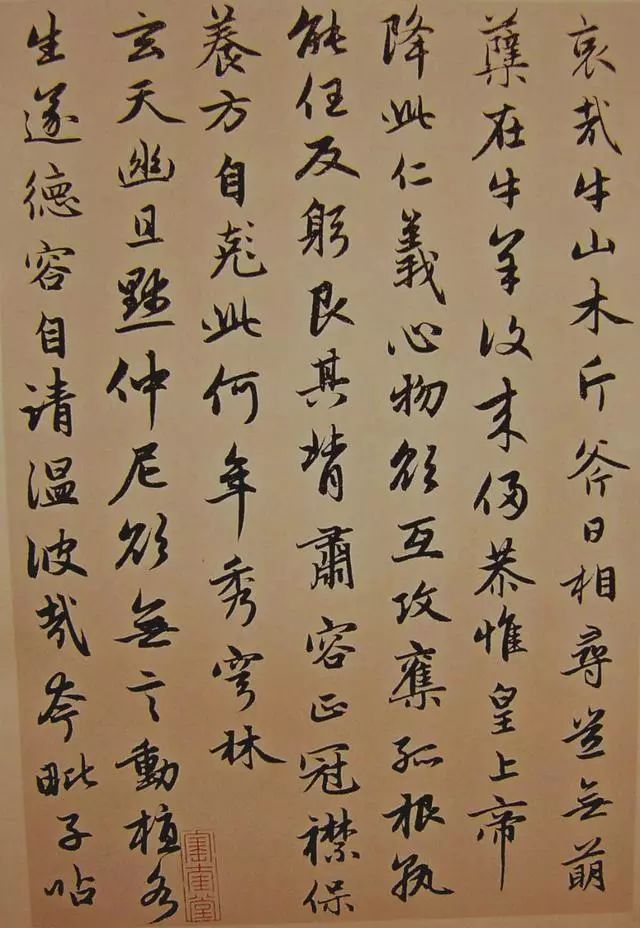 哀哉牛山木斤斧日相尋豈無萌
蘖在牛羊復来侵恭惟皇上帝
降此仁義心物欲互攻奪孤根孰
能任反躬艮其背肅容正冠襟保
養方自此何年秀穹林
玄天幽且默仲尼欲無言動植各
生遂德容自清温彼哉夸毗子呫